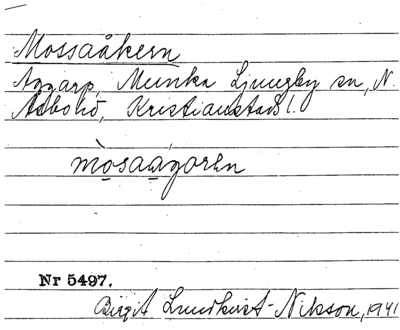 Mossaåkern
Aggarp, Munka Ljungby sn, N.
Åsbo hd, Kristianstads l.
mòsaágorən
Nr 5497.
Birgit Lundkvist-Nilsson, 1941